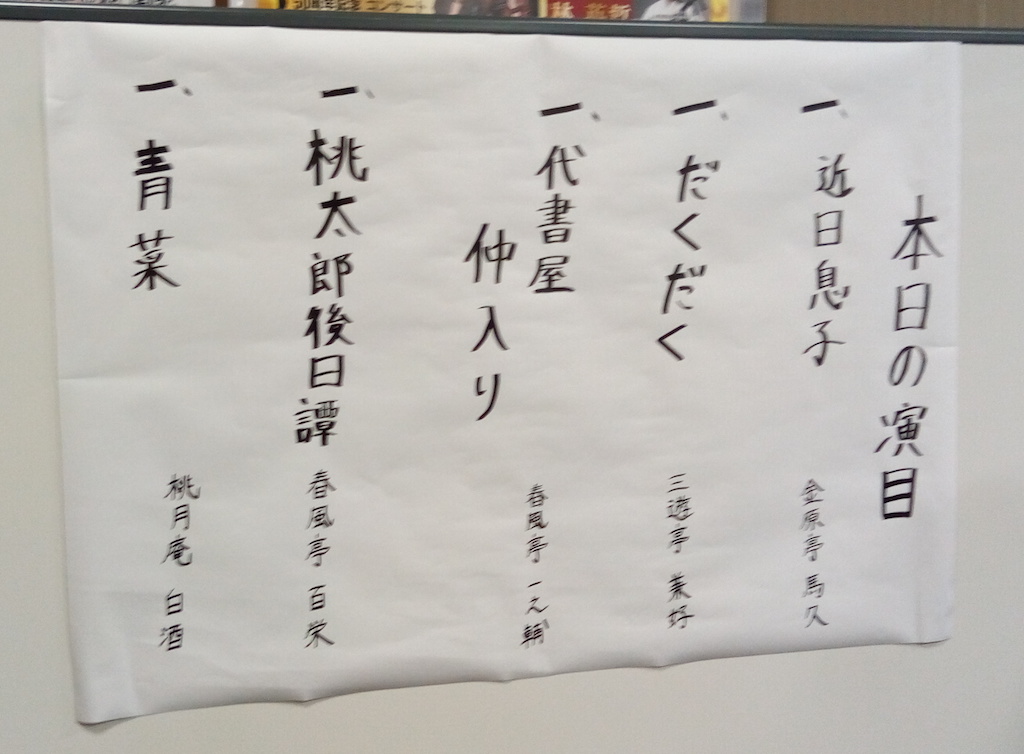 50周年記念コンサート
林 英哲
本日の演目
一、近日息子 金原亭 馬久
一、だくだく 三遊亭 兼好
一、代書屋 春風亭 一之輔
仲入り
一、桃太郎後日譚 春風亭 百栄
一、青菜 桃月庵 白酒